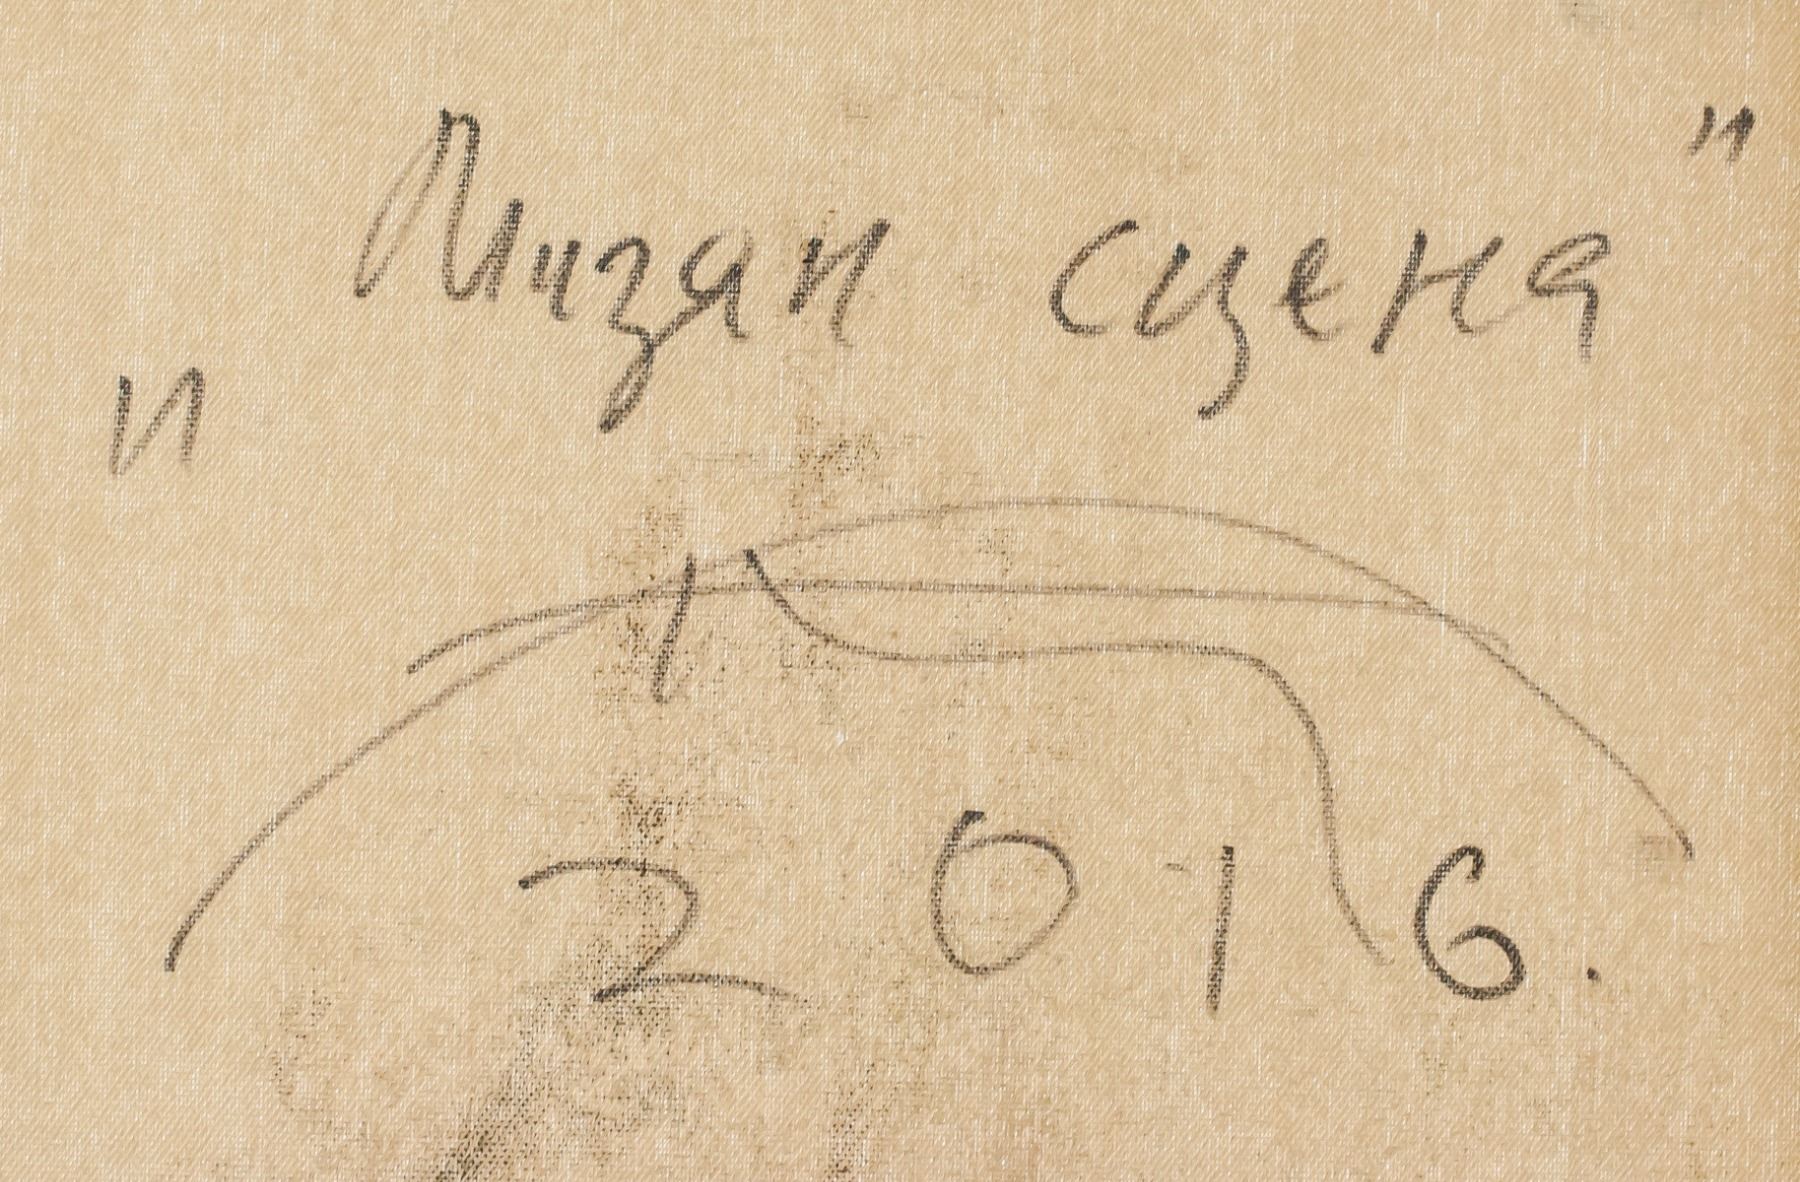 "Мизан сцена"
2016.